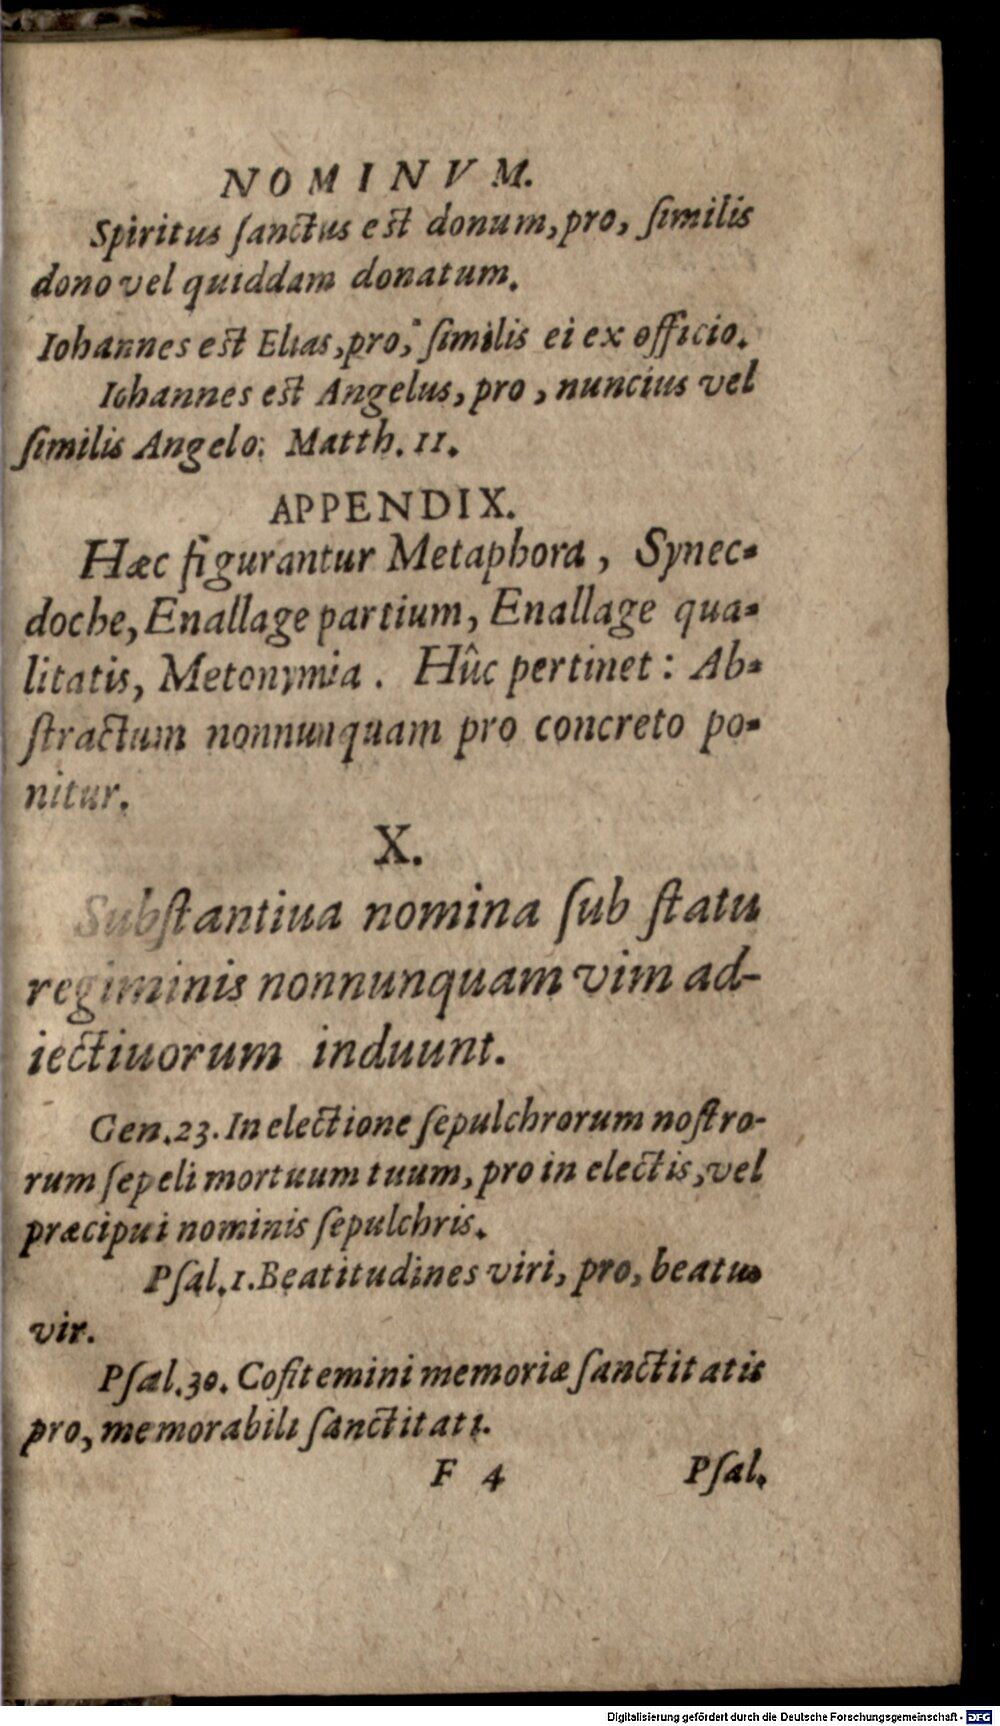 NOMINVM.
Spiritus ſanctus est donum, pro, ſimilis
dono vel quiddam donatum.
Iohannes est Elias, pro, ſimilis ei ex officio.
Iohannes est Angelus, pro, nuncius vel
ſimilis Angelo: Matth. 11.
APPENDIX.
Hæc figurantur Metaphora, Synec-
doche, Enallage partium, Enallage qua-
litatis, Metonymia. Hûc pertinet: Ab-
ſtractum nonnunquam pro concreto po-
nitur.
X.
Subſtantiua nomina ſub ſtatu
regiminis nonnunquam vim ad-
iectiuorum induunt.
Gen. 23. In electione ſepulchrorum noſtro-
rum ſepeli mortuum tuum, pro in electis, vel
præcipui nominis ſepulchris.
Pſal. 1. Beatitudines viri, pro, beatus
vir.
Pſal. 30. Cofitemini memoriæ ſanctitatis
pro, memorabili ſanctitati.
F 4 Pſal.
Digitalisierung gefördert durch die Deutsche Forschungsgemeinschaft - DFG